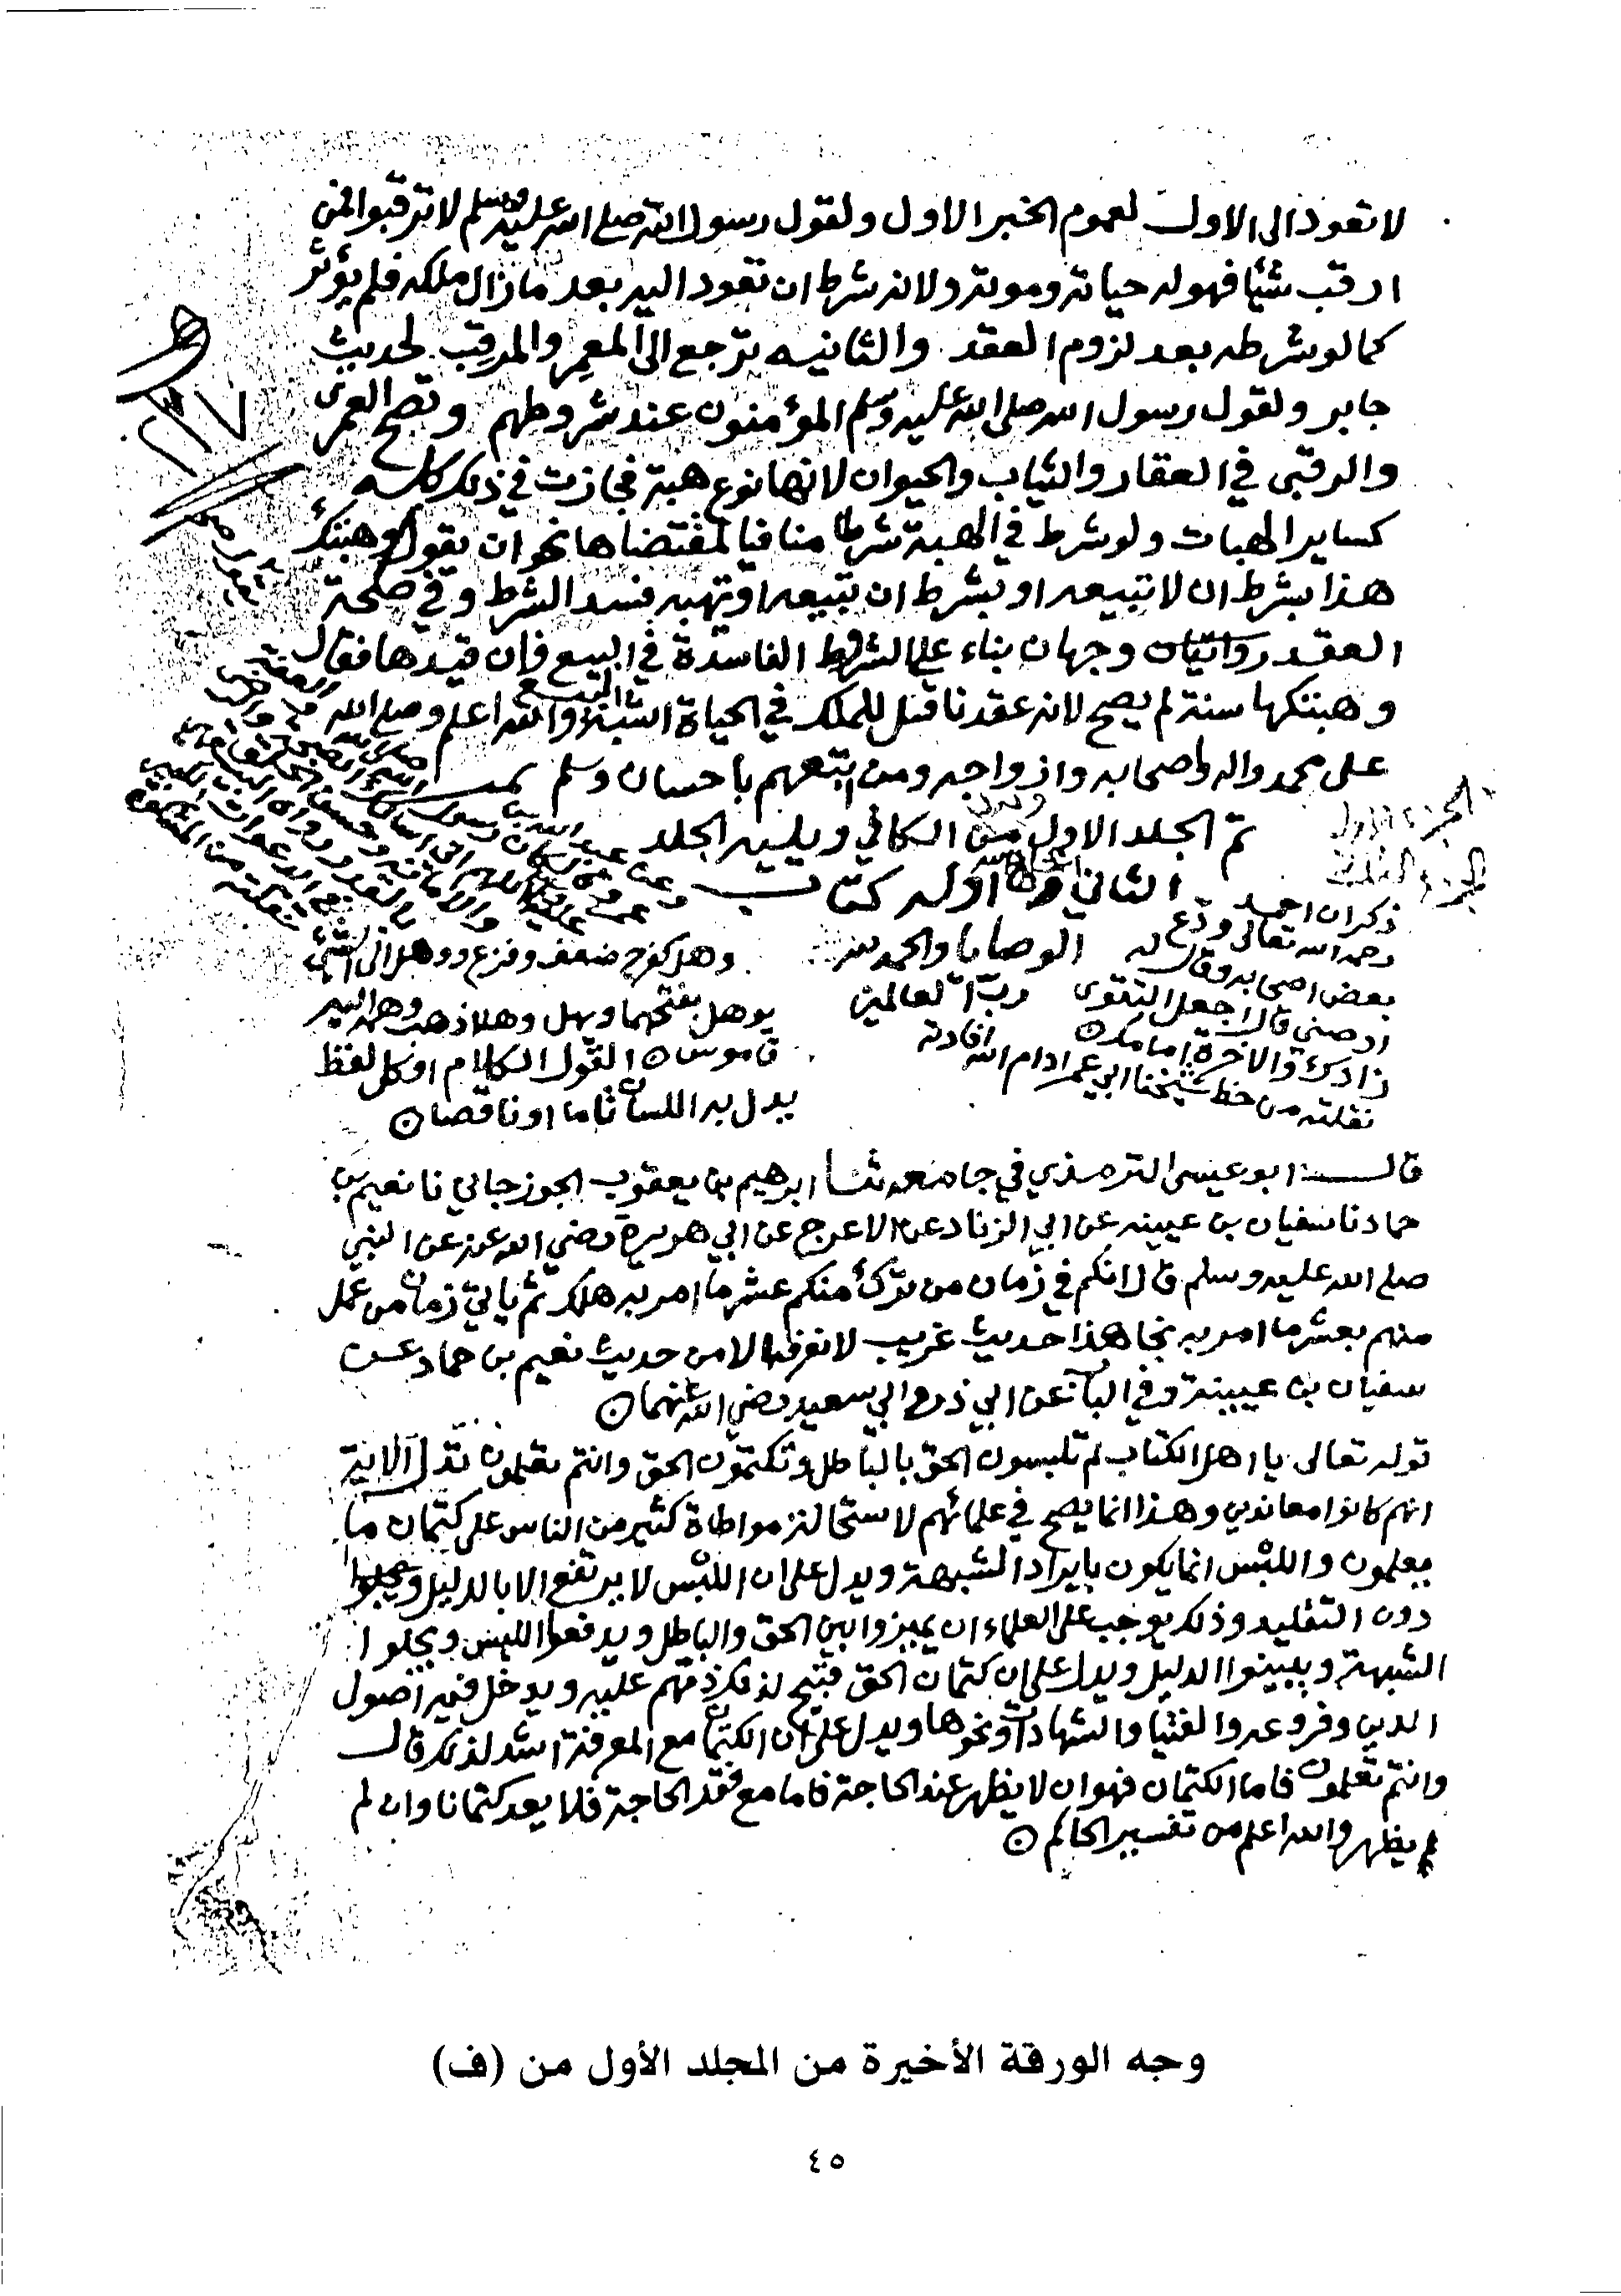 لا تعود الى الاول لعموم الخبر الاول ولقول رسول الله صلى الله عليه وسلم لا ترقبوا فمن
ارقب شيئا فهو له حياته وموته ولانه شرط ان تعود اليه بعد ما زال ملكه فلم يؤثر
كما لو شرطه بعد لزوم العقد والثانيه ترجع الى المعمِر والمرقِب لحديث
جابر ولقول رسول الله صلى الله عليه وسلم المؤمنون عند شروطهم وتصح العمرى
والرقبى في العقار والثياب والحيوان لانها نوع هبة فجازت في ذلك كله
كساير الهبات ولو شرط في الهبة شرطا منافيا لمقتضاها نحو ان يقول وهبتك
هذا بشرط ان لا تبيعه او بشرط ان تبيعه او تهبه فسد الشرط وفي صحة
العقد وجهان بناء على الشروط الفاسدة في البيع فإن قيدها فقال
وهبتكها سنة لم يصح لانه عقد ناقل للملك في الحياة اشبه البيع والله اعلم وصلى الله
على محمد واله واصحابه وازواجه ومن اتبعهم باحسان وسلم
تم الجلد الاول من الكافي ويليه الجلد
الثاني اوله كتاب
الوصايا والحمد لله
رب العالمين
ذكر ان احمد
رحمه الله تعالى ودّع
بعض اصحابه وقال له
اوصني قال اجعل التقوى
زادك والاخرة امامك
نقلته من خط شيخنا ابي عمر ادام الله افادته
وهل كفرح ضعف وفزع ووهل الى الشيء
يوهل بفتحهما ويهل وهلا ذهب وهمه اليه
قاموس القول الكلام او كل لفظ
يدل به اللسان تاما او ناقصا
قال ابو عيسى الترمذي في جامعه ثنا ابرهيم بن يعقوب الجوزجاني نا نعيم بن
حماد نا سفيان بن عيينه عن ابي الزناد عن الاعرج عن ابي هريرة رضي الله عنه عن النبي
صلى الله عليه وسلم قال انكم في زمان من ترك منكم عشر ما امر به هلك ثم يأتي زمان من عمل
منهم بعشر ما امر به نجا هذا حديث غريب لا نعرفه الا من حديث نعيم بن حماد عن
سفيان بن عيينة وفي الباب عن ابي ذر وابي سعيد رضي الله عنهما
قوله تعالى يا اهل الكتاب لم تلبسون الحق بالباطل وتكتمون الحق وانتم تعلمون تدل الاية
انهم كانوا معاندين وهذا انما يصح في علمائهم لاستحالة مواطاة كثير من الناس على كتمان ما
يعلمون واللبس انما يكون بايراد الشبهة ويدل على ان اللبس لا يرتفع الا بالدليل
دون التقليد وذلك يوجب على العلماء ان يميزوا بين الحق والباطل ويدفعوا اللبس ويحلوا
الشبهة ويبينوا الدليل ويدل على ان كتمان الحق قبيح لذلك ذمهم عليه ويدخل فيه اصول
الدين وفروعه والفتيا والشهادات ونحوها ويدل على ان الكتمان مع المعرفة اشد لذلك قال
وانتم تعلمون فاما الكتمان فهو ان لا يظهر عند الحاجة فاما مع فقد الحاجة فلا يعد كتمانا وان لم
يظهر والله اعلم من تفسير الحاكم
وجه الورقة الأخيرة من المجلد الأول من (ف)
٤٥